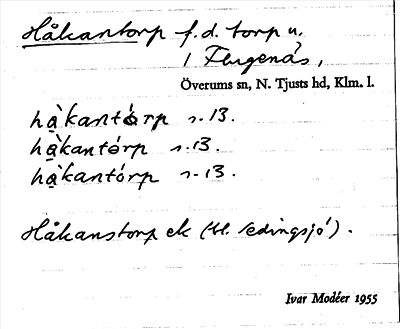 Håkantorp f.d. torp u.
/ Flugenäs,
Överums sn, N. Tjusts hd, Klm. l.
hà̱kantórp s. 13.
hà̱kantórp s. 13.
hà̱kantórp s. 13.
Håkanstorp ek (bl. Ledingsjö).
Ivar Modéer 1955